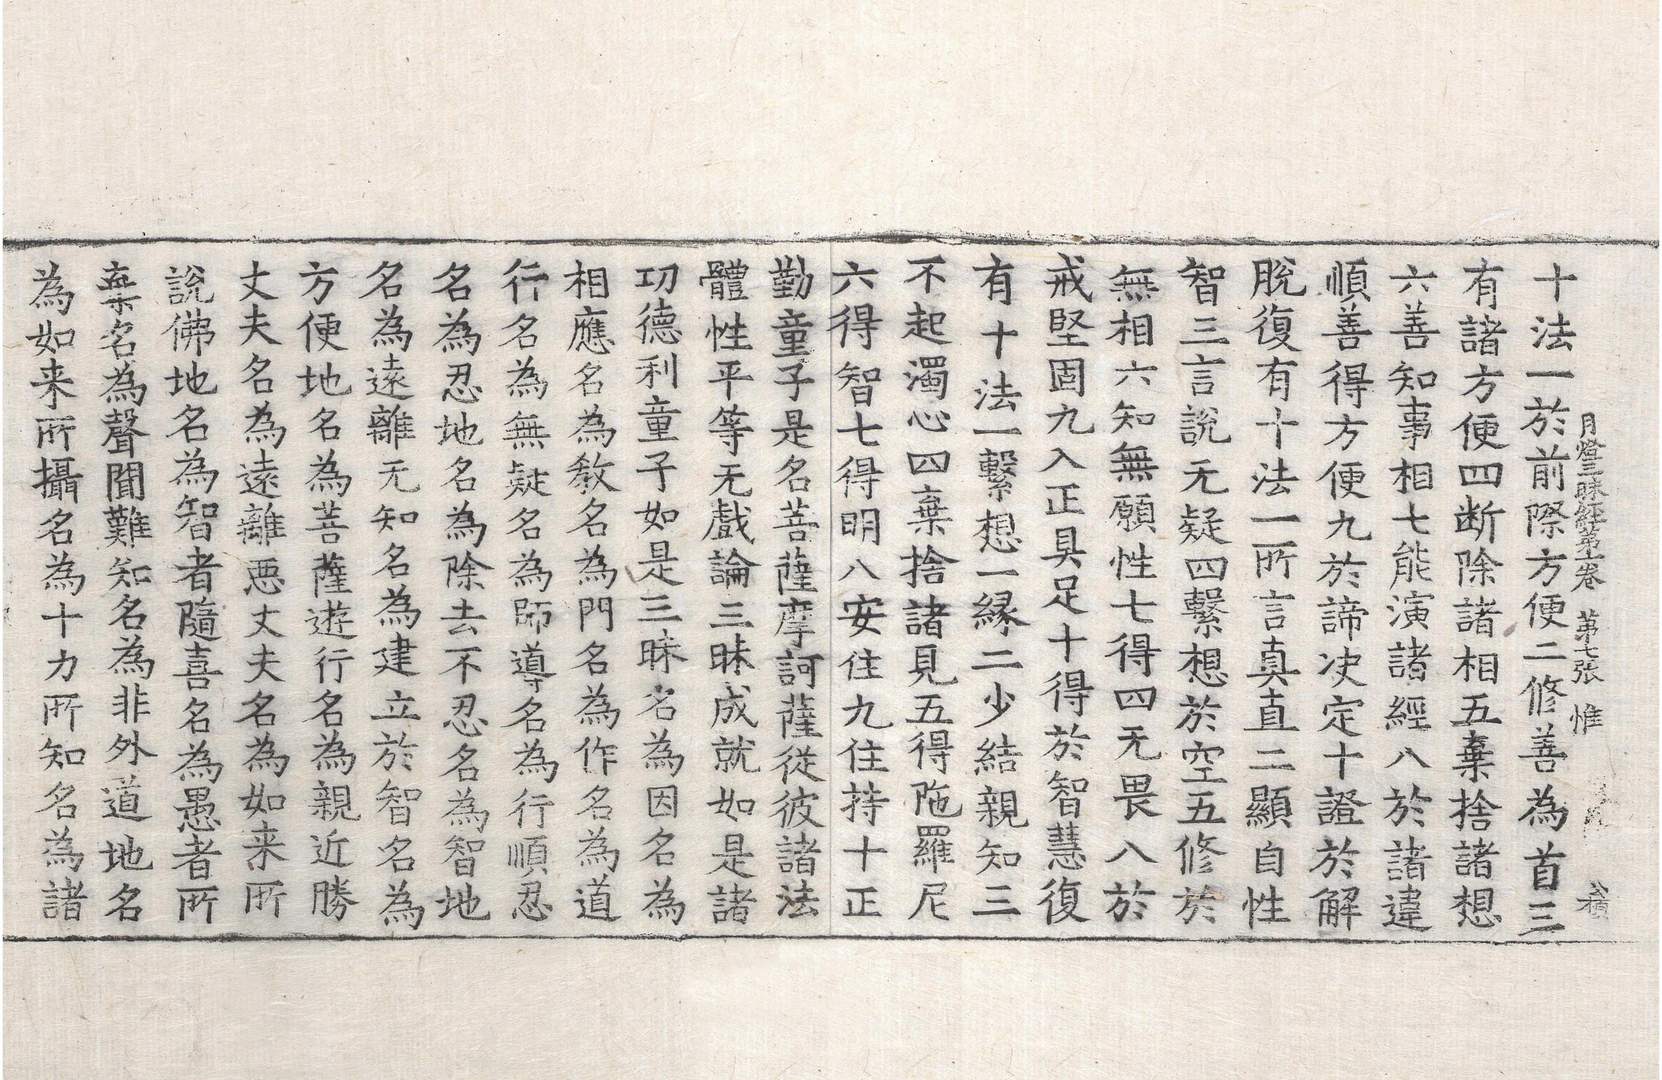 月燈三昧經第十卷　第七張　惟
十法一於前際方便二修善為首三
有諸方便四断除諸相五棄捨諸想
六善知事相七能演諸經八於諸違
順善得方便九於諦决定十證於解
脫復有十法一所言真直二顯自性
智三言說无疑四繫想於空五修於
無相六知無願性七得四无畏八於
戒堅固九入正具足十得於智慧復
有十法一繫想一縁二少結親知三
不起濁心四棄捨諸見五得陁羅尼
六得智七得明八安住九住持十正
勤童子是名菩薩摩訶薩從彼諸法
體性平等无戲論三昧成就如是諸
功德利童子如是三昧名為因名為
相應名為教名為門名為作名為道
行名為無疑名為師導名為行順忍
名為忍地名為除去不忍名為智地
名為遠離无知名為建立於智名為
方便地名為菩薩遊行名為親近勝
丈夫名為遠離悪丈夫名為如来所
說佛地名為智者隨喜名為愚者所
棄名為聲聞難知名為非外道地名
為如来所攝名為十力所知名為諸